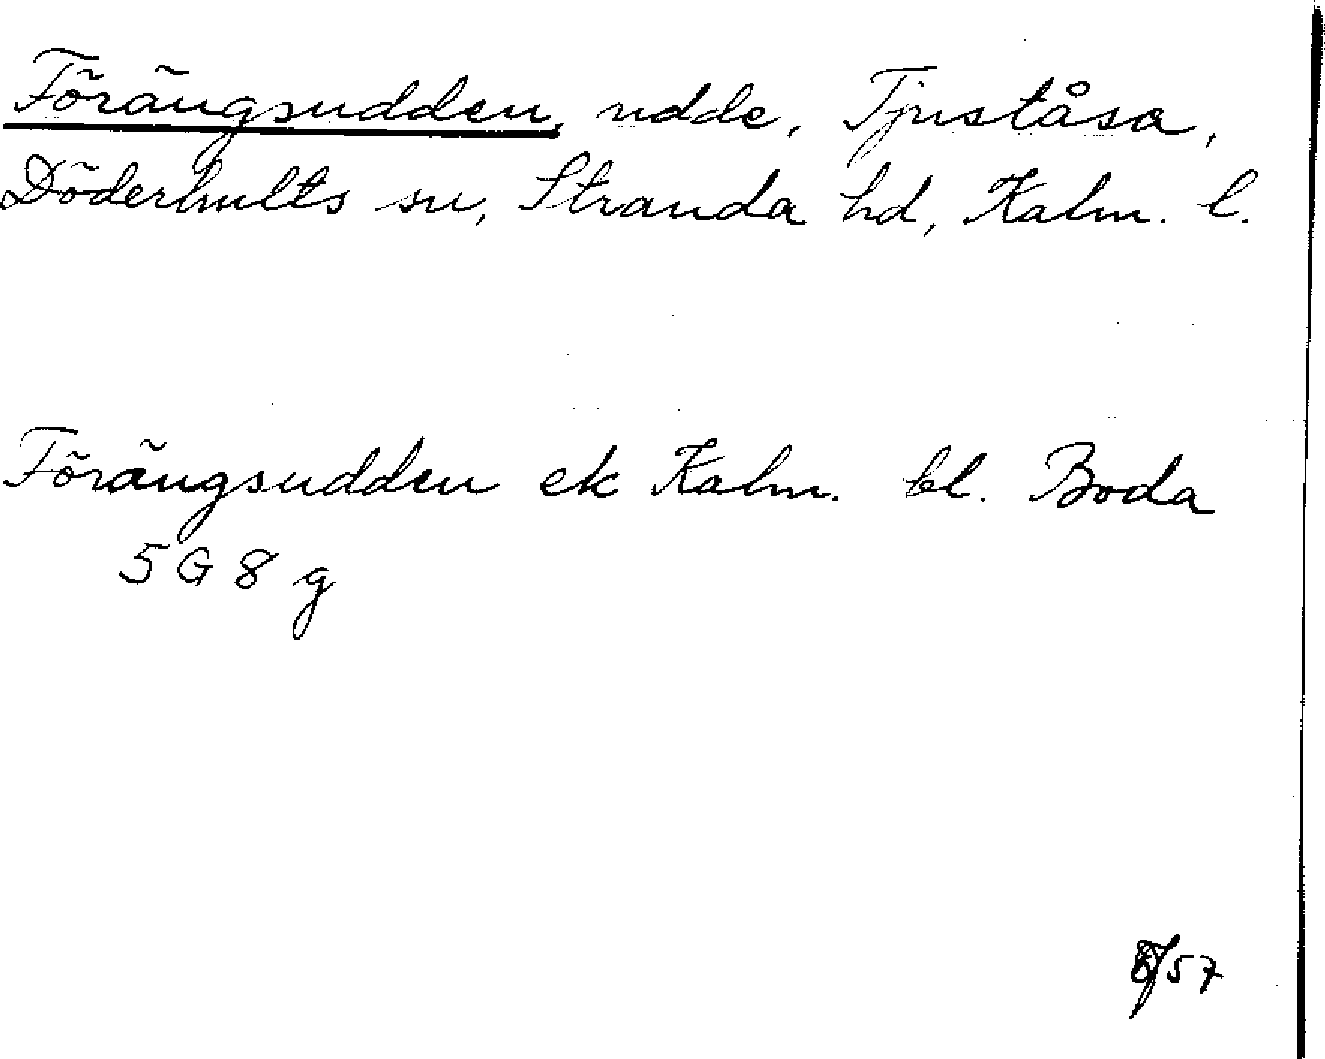 Förängsudden, udde, Tjuståsa,
Döderhults sn, Stranda hd, Kalm. l.
Förängsudden ek Kalm. bl. Boda
5 G 8 g
57